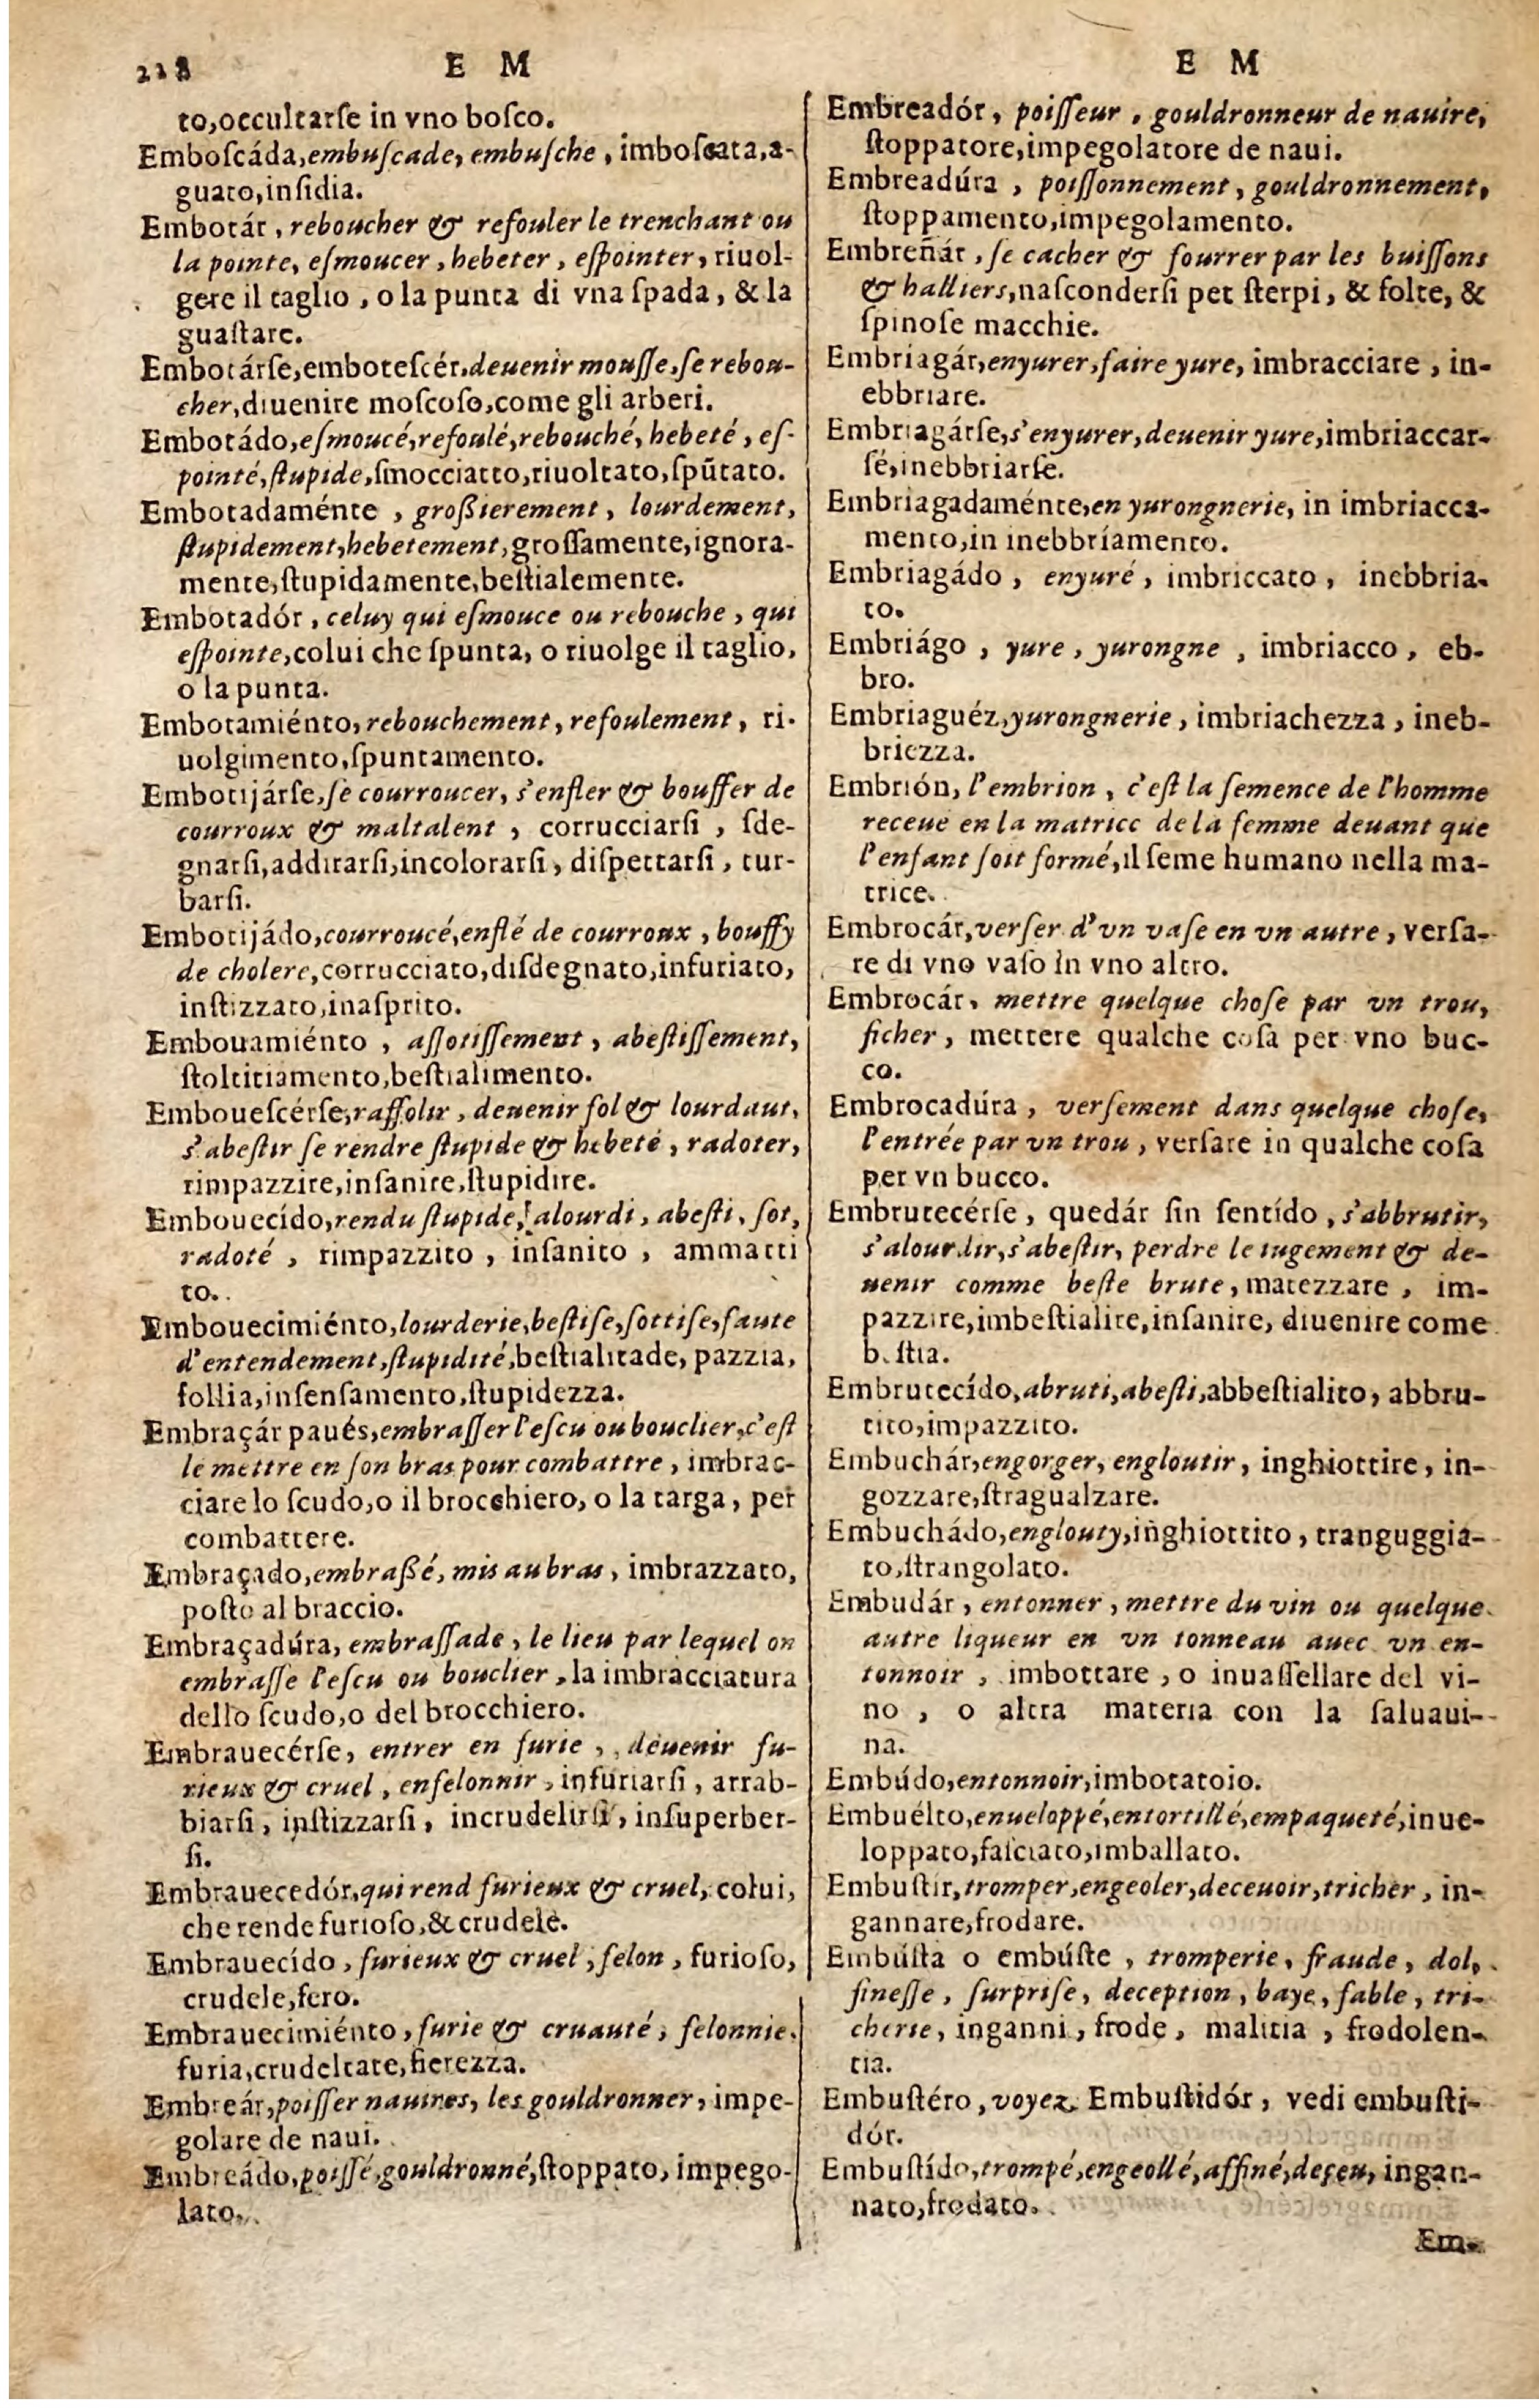 228
E M
to,occultarſe in vno boſco.
Emboſcáda,embuſcade, embuſche, imboſcata,a-
guato,inſidia.
Embotár, reboucher & refouler le trenchant ou
la pointe, eſmoucer, hebeter, eſpointer, riuol-
gere il taglio, o la punta di vna ſpada, & la
guaſtare.
Embotárſe,emboteſcér,deuenir mouſſe,ſe rebou-
cher,diuenire moſcoſo,come gli arberi.
Embotádo,eſmoucé,refoulé,rebouché, hebeté, eſ-
pointé,ſtupide,ſmocciatto,riuoltato,ſpũtato.
Embotadaménte, großierement, lourdement,
ſtupidement,hebetement,groſſamente,ignora-
mente,ſtupidamente,beſtialemente.
Embotadór, celuy qui eſmouce ou rebouche, qui
eſpointe,colui che ſpunta, o riuolge il taglio,
o la punta.
Embotamiénto,rebouchement, refoulement, ri-
uolgimento,ſpuntamento.
Embotijárſe,ſe courroucer, s'enfler & bouffer de
courroux & maltalent, corrucciarſi, ſde-
gnarſi,addirarſi,incolorarſi, diſpettarſi, tur-
barſi.
Embotijádo,courroucé,enflé de courroux, bouffy
de cholere,corrucciato,diſdegnato,infuriato,
inſtizzato,inaſprito.
Embouamiénto, aſſotiſſement, abeſtiſſement,
ſtoltitiamento,beſtialimento.
Emboueſcérſe,raffolir, deuenir fol & lourdaut,
s'abeſtir ſe rendre ſtupide & hebeté, radoter,
rimpazzire,inſanire,ſtupidire.
Embouecído,rendu ſtupide, alourdi, abeſti, ſot,
radoté, rimpazzito, inſanito, ammatti
to.
Embouecimiénto,lourderie,beſtiſe,ſottiſe,faute
d'entendement,ſtupidité,beſtialitade, pazzia,
follia,inſenſamento,ſtupidezza.
Embraçár paués,embraſſer l'eſcu ou bouclier,c'eſt
le mettre en ſon bras pour combattre, imbrac-
ciare lo ſcudo,o il brocchiero, o la targa, per
combattere.
Embraçado,embraßé, mis au bras, imbrazzato,
poſto al braccio.
Embraçadúra, embraſſade, le lieu par lequel on
embraſſe l'eſcu ou bouclier, la imbracciatura
dello ſcudo,o del brocchiero.
Embrauecérſe, entrer en furie, deuenir fu-
rieux & cruel, enfelonnir, infuriarſi, arrab-
biarſi, inſtizzarſi, incrudelirſi, inſuperber-
ſi.
Embrauecedór,qui rend furieux & cruel, colui,
che rende furioſo,& crudele.
Embrauecído, furieux & cruel, felon, furioſo,
crudele,fero.
Embrauecimiénto, furie & cruauté, felonnie,
furia,crudeltate,fierezza.
Embreár,poiſſer nauires, les gouldronner, impe-
golare de naui.
Embreádo,poiſſé,gouldronné,ſtoppato, impego-
lato.
E M
Embreadór, poiſſeur, gouldronneur de nauire,
ſtoppatore,impegolatore de naui.
Embreadúra, poiſſonnement, gouldronnement,
ſtoppamento,impegolamento.
Embreñár, ſe cacher & fourrer par les buiſſons
& halliers,naſconderſi per ſterpi, & folte, &
ſpinoſe macchie.
Embriagár,enyurer,faire yure, imbracciare, in-
ebbriare.
Embriagárſe,s'enyurer,deuenir yure,imbriaccar-
ſé,inebbriarſe.
Embriagadaménte,en yurongnerie, in imbriacca-
mento,in inebbríamento.
Embriagádo, enyuré, imbriccato, inebbria-
to.
Embriágo, yure, yurongne, imbriacco, eb-
bro.
Embriaguéz,yurongnerie, imbriachezza, ineb-
briezza.
Embrión, l'embrion, c'eſt la ſemence de l'homme
receue en la matrice de la femme deuant que
l'enfant ſoit formé,il ſeme humano nella ma-
trice.
Embrocár,verſer d'vn vaſe en vn autre, verſa-
re di vno vaſo in vno altro.
Embrocár, mettre quelque choſe par vn trou,
ficher, mettere qualche coſa per vno buc-
co.
Embrocadúra, verſement dans quelque choſe,
l'entrée par vn trou, verſare in qualche coſa
per vn bucco.
Embrutecérſe, quedár ſin ſentído, s'abbrutir,
s'alourdir,s'abeſtir, perdre le iugement & de-
uenir comme beſte brute, matezzare, im-
pazzire,imbeſtialire,inſanire, diuenire come
b.ſtia.
Embrutecído,abruti,abeſti,abbeſtialito, abbru-
tito,impazzito.
Embuchár,engorger, engloutir, inghiottire, in-
gozzare,ſtragualzare.
Embuchádo,englouty,inghiottito, tranguggia-
to,ſtrangolato.
Embudár, entonner, mettre du vin ou quelque
autre liqueur en vn tonneau auec vn en-
tonnoir, imbottare, o inuaſſellare del vi-
no, o altra materia con la ſaluaui-
na.
Embúdo,entonnoir,imbotatoio.
Embuélto,enueloppé,entortillé,empaqueté,inue-
loppato,faſciato,imballato.
Embuſtir,tromper,engeoler,deceuoir,tricher, in-
gannare,frodare.
Embúſta o embúſte, tromperie, fraude, dol,
fineſſe, ſurpriſe, deception, baye, fable, tri-
cherie, inganni, frode, malitia, frodolen-
tia.
Embuſtéro, voyez Embuſtidór, vedi embuſti-
dór.
Embuſtído,trompé,engeollé,affiné,deçeu, ingan-
nato,frodato.
Em-